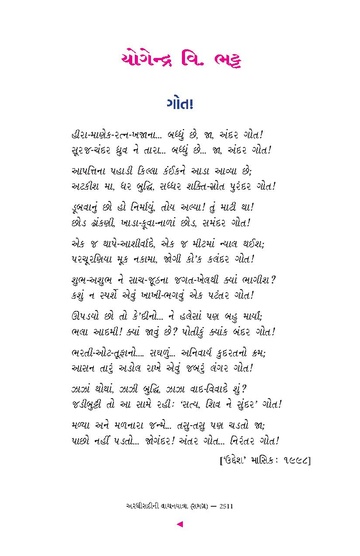 યોગેન્દ્ર વિ. ભટ્ટ
ગોત!
હીરા-માણેક-રત્ન-ખજાના... બધ્ધું છે, જા, અંદર ગોત!
સૂરજ-ચંદર ધ્રુવ ને તારા... બધ્ધું છે... જા, અંદર ગોત!
આપત્તિના પહાડી કિલ્લા કંઈકને આડા આવ્યા છે;
અટકીશ મા, ધર બુદ્ધિ, સધ્ધર શક્તિ-સ્રોત પુરંદર ગોત!
ડૂબવાનું છો હો નિર્માયું, તોય અલ્યા! તું માટી થા!
છોડ ઢાંકણી, ખાડા-કૂવા-નાળાં છોડ, સમંદર ગોત!
એક જ થાપે-આશીર્વાદે, એક જ મીટમાં ન્યાલ થઈશ;
પરચૂરણિયા મૂક નકામા, જોગી કો'ક કલંદર ગોત!
શુભ-અશુભ ને સાચ-જૂઠના જગત-ખેલથી ક્યાં ભાગીશ?
કશું ન સ્પર્શે એવું ખાખી-ભગવું એક પટંતર ગોત!
ઊપડવો છો તો કે'દીનો... ને હલેસાં પણ બહુ માર્યાં;
ભલા આદમી! ક્યાં જાવું છે? પોતીકું ક્યાંક બંદર ગોત!
ભરતી-ઓટ-તૂફાનો.... સઘળું... અનિવાર્ય કુદરતનો ક્રમ;
આસન તારું અડોલ રાખે એવું જબરું લંગર ગોત!
ઝાઝાં થોથાં, ઝાઝી બુદ્ધિ, ઝાઝા વાદ-વિવાદે શું?
જડીબુટ્ટી તો આ સામે રહી: 'સત્ય, શિવ ને સુંદર' ગોત!
મળ્યા અને મળનારા જન્મે... તસુ-તસુ પણ ચડતો જા;
પાછો નહીં પડતો... જોગંદર! અંતર ગોત... નિરંતર ગોત!
['ઉદ્દેશ' માસિક: ૧૯૯૮]
અરધીસદીની વાચનયાત્રા (સમગ્ર) — 2511